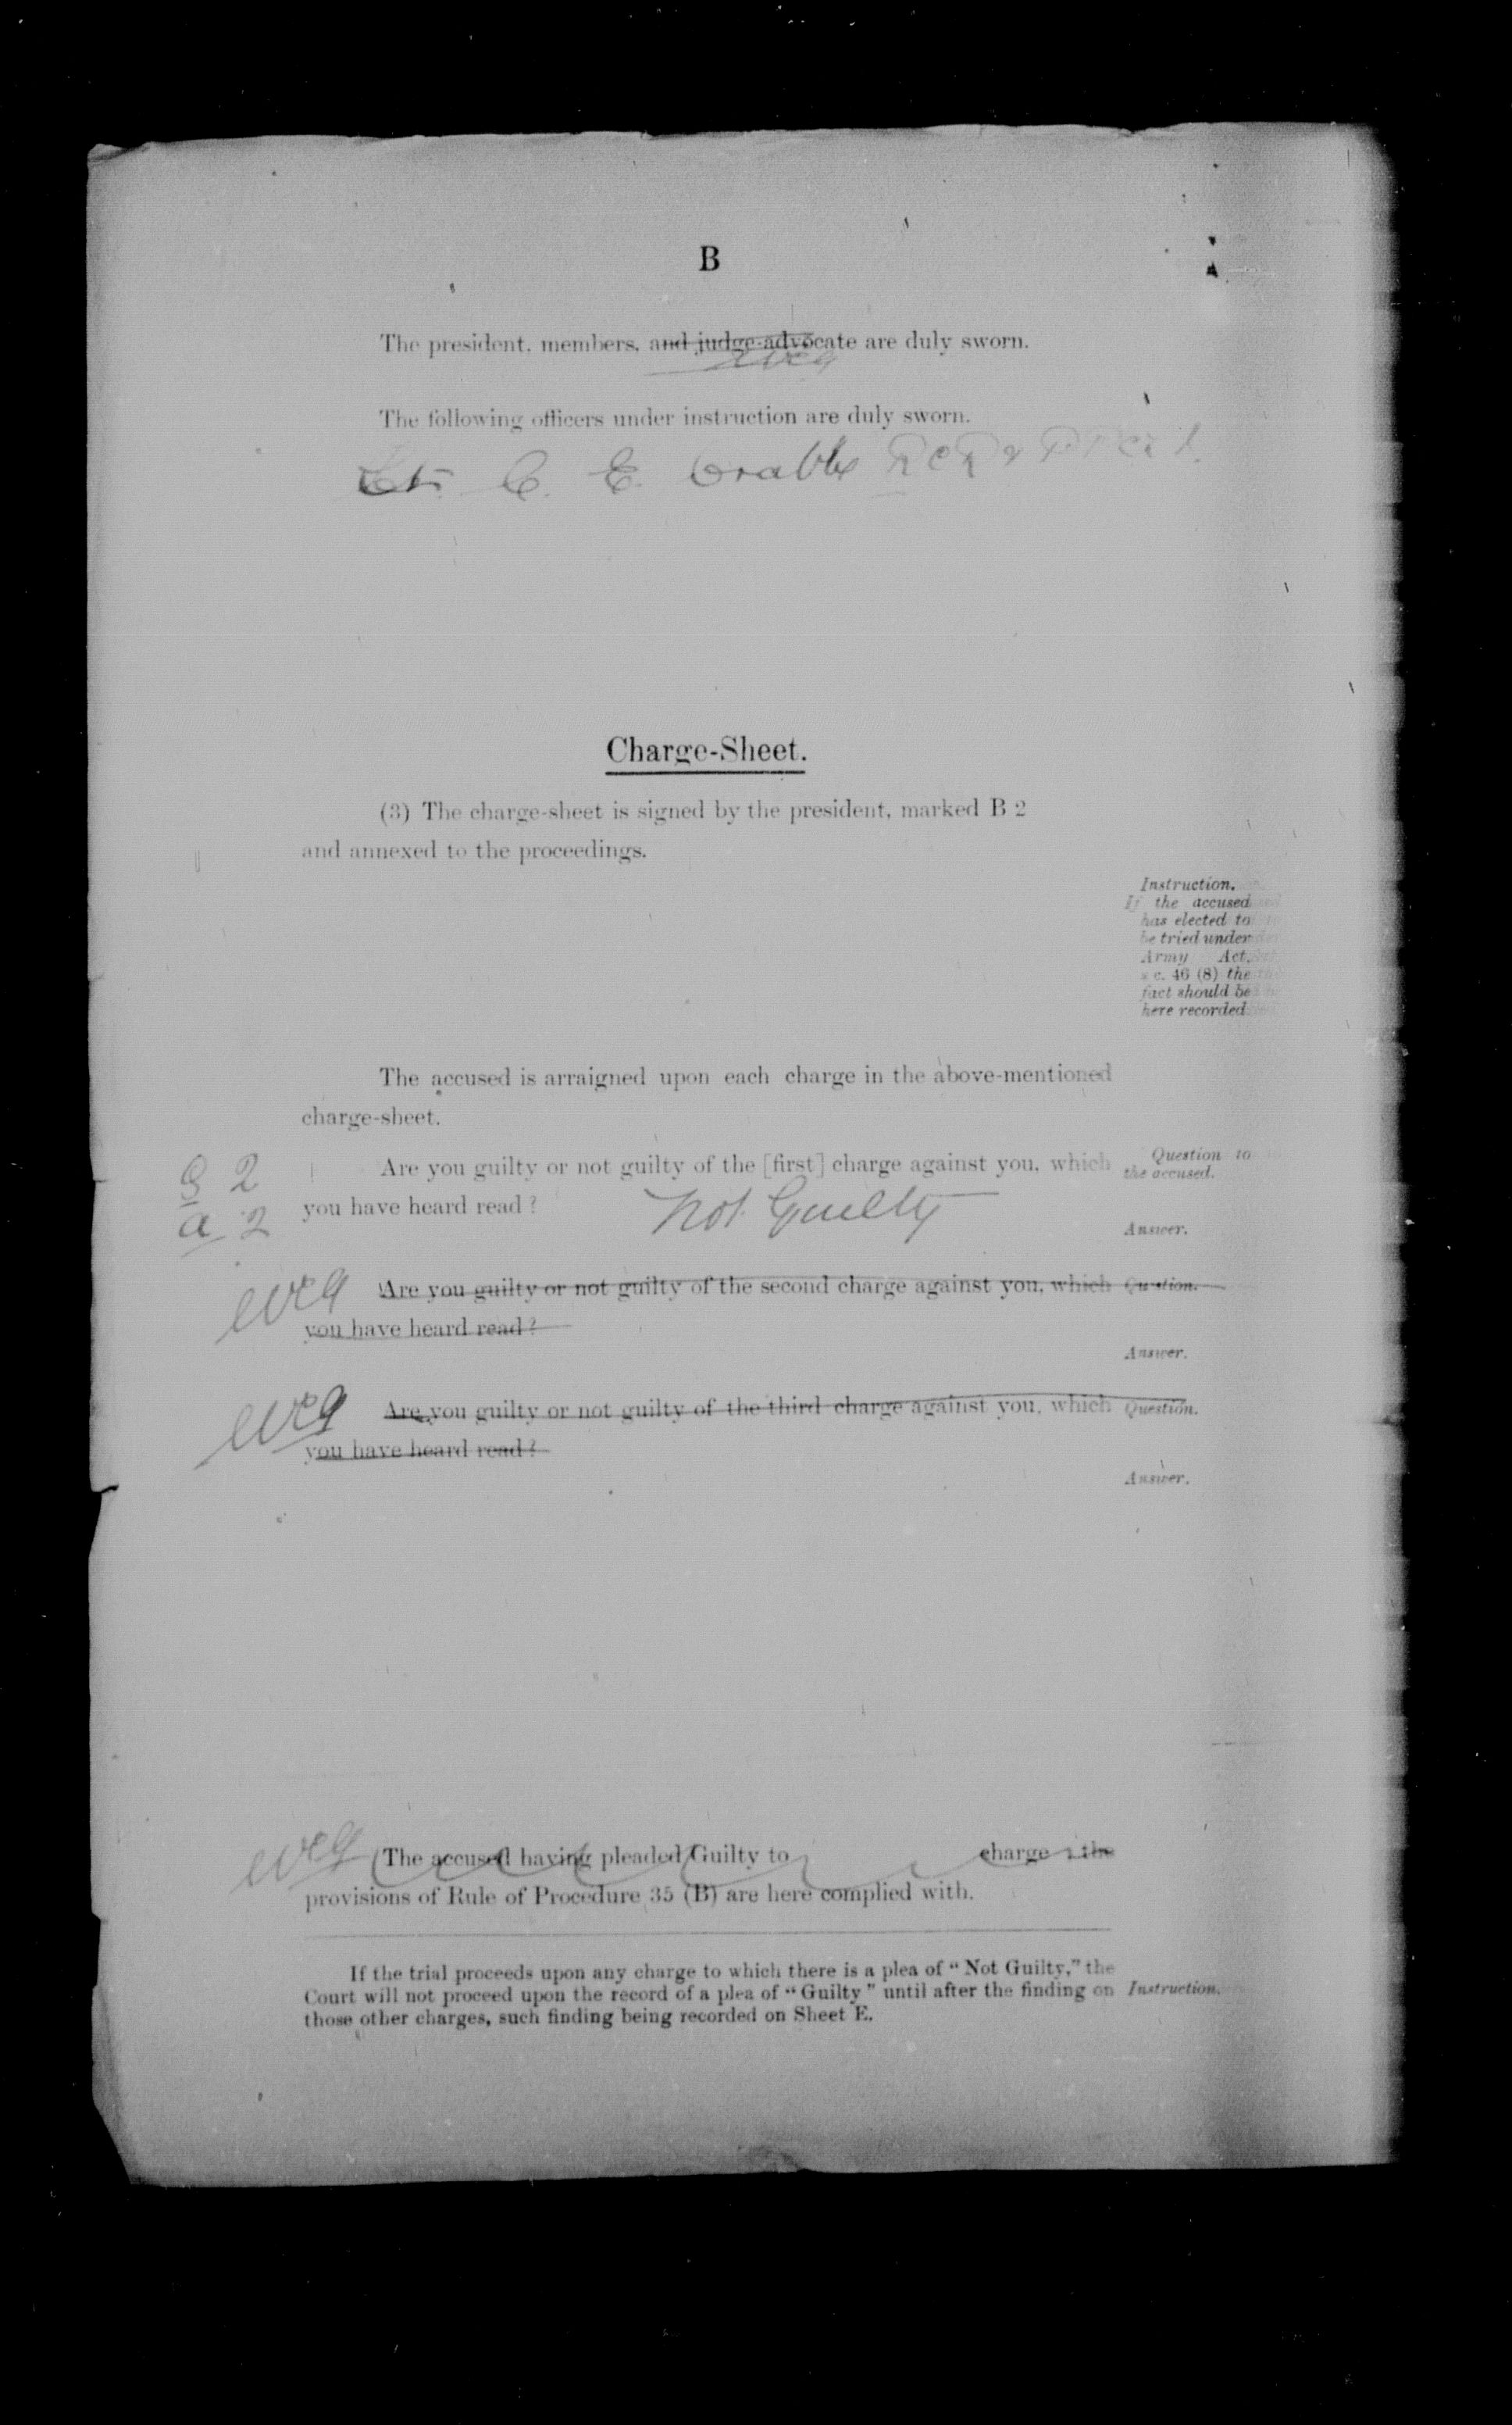 B
The president, members, and judge-advocate are duly sworn.
The following officers under instruction are duly sworn.
Lt. C. E.
Charge-Sheet.
(3) The charge-sheet is signed by the president, marked B 2
and annexed to the proceedings.
Instruction.
If the accused
has elected to
be tried under
Army Act,
s c. 46 (8) the
fact should be
here recorded
The accused is arraigned upon each charge in the above-mentioned
charge-sheet.
Q 2 Are you guilty or not guilty of the [first] charge against you, which Question to
the accused.
a 2 you have heard read ? Not Guilty
Answer.
Are you guilty or not guilty of the second charge against you, which Question.
you have heard read ?
Answer.
Are you guilty or not guilty of the third charge against you, which Question.
you have heard read ?
Answer.
The accused having pleaded Guilty to charge the
provisions of Rule of Procedure 35 (B) are here complied with.
If the trial proceeds upon any charge to which there is a plea of “ Not Guilty,” the
Court will not proceed upon the record of a plea of “ Guilty ” until after the finding on Instruction.
those other charges, such finding being recorded on Sheet E.